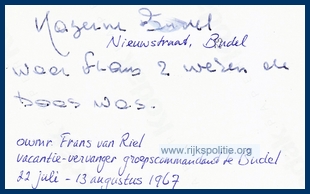 Kazerne Budel
Nieuwstraat, Budel
waar Frans 2 weken de
baas was.
www.rijkspolitie.org
owmr Frans van Riel
vacantie-vervanger groepscommandant te Budel
22 juli - 13 augustus 1967